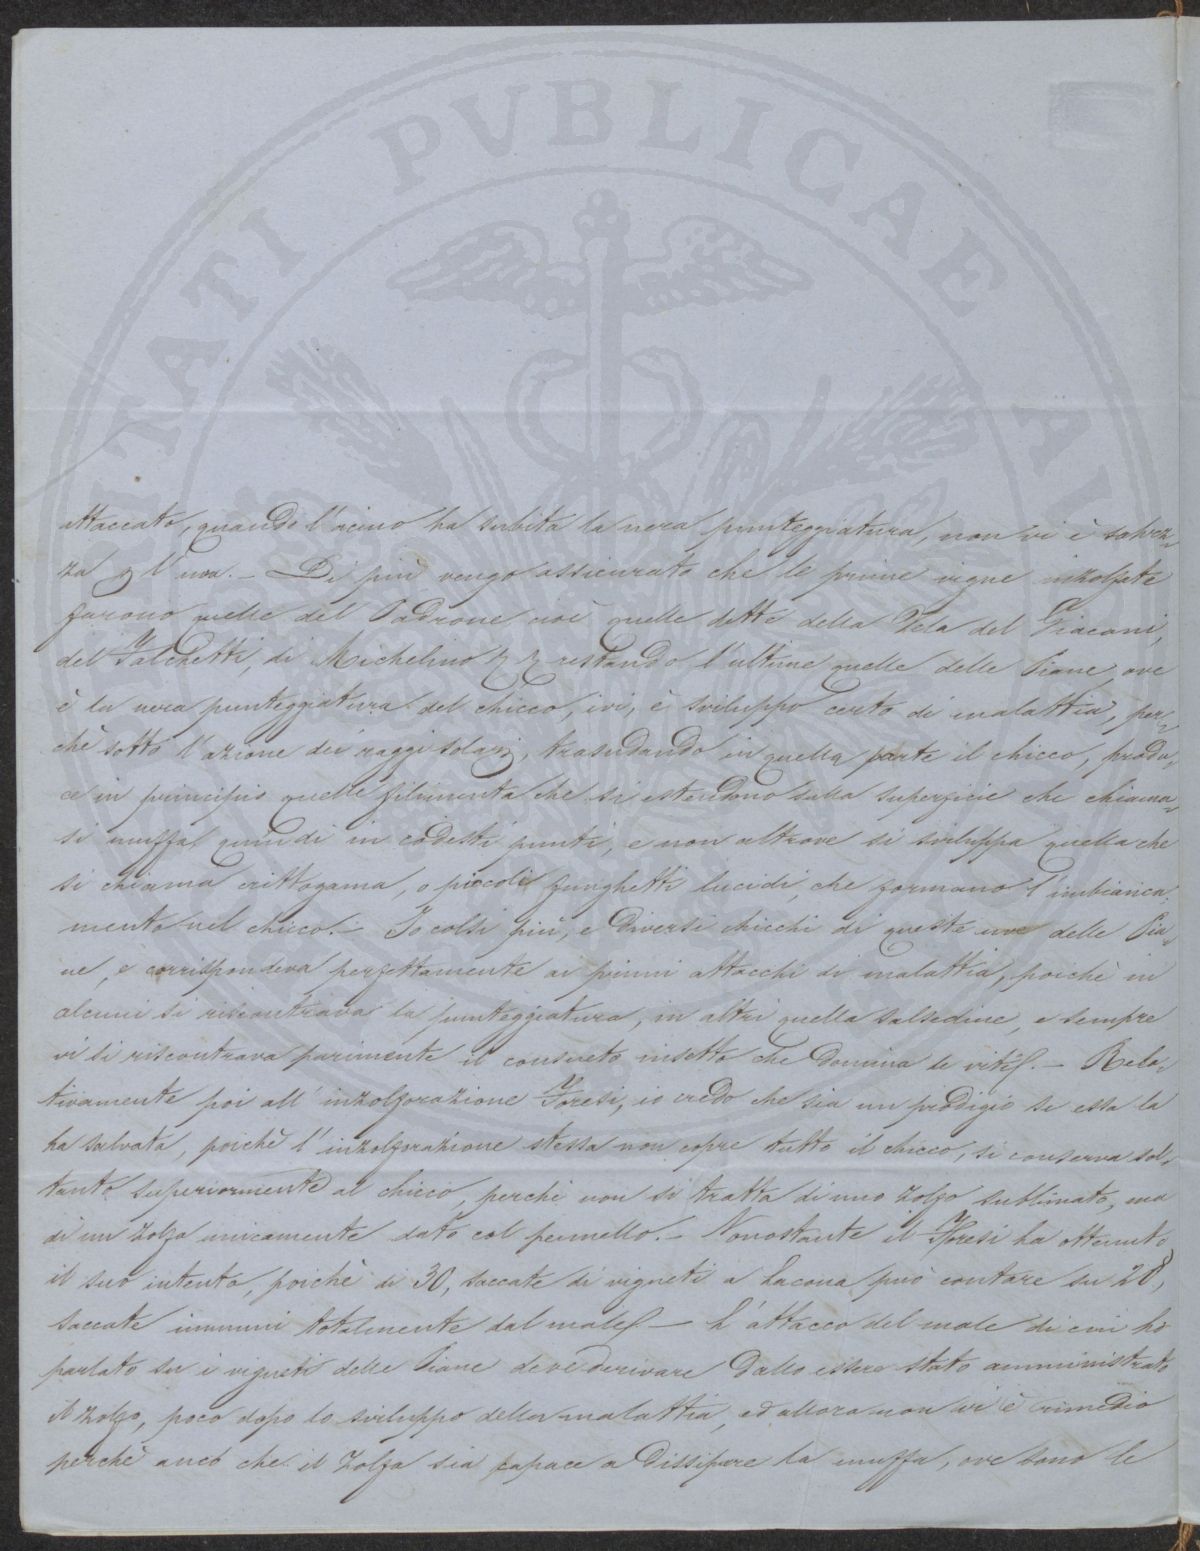 PVBLICAE
attaccato, quando l'acino ha subita la nera punteggiatura, non vi è salvez=
za l'uva. – Di più vengo assicurato che le prime vigne inzolfate
furono quelle del Padrone cioè quelle dette della Vela del Giaconi,
del Falchetti, di Michelino restando l'ultime quelle delle Piane, ove
è la nera punteggiatura del chicco, ivi, è sviluppo certo di malattia, per=
chè sotto l'azione dei raggi solari, trasudando in quella parte il chicco, produ=
ce in principio quelle filimenta che si estendono sulla superficie che chiama=
si muffa, quindi in codesti punti, e non altrove si sviluppa quella che
si chiama crittogama, o piccoli funghetti lucidi, che formano l'imbianca=
mento nel chicco. – Io colsi più, e diversi chicchi di queste uve delle Pia=
ne, e corrispondeva perfettamente ai primi attacchi di malattia, poichè in
alcuni si riscontrava la punteggiatura, in altri quella salsedine, e sempre
vi si riscontrava parimente il consueto insetto che domina le viti. – Rela=
tivamente poi all'inzolforazione Foresi, io credo che sia un prodigio se essa la
ha salvata, poichè l'inzolforazione stessa non copre tutto il chicco, si conserva sol=
tanto superiormente al chicco, perchè non si tratta di uno zolfo sublimato, ma
di un zolfo unicamente dato col pennello. – Nonostante il Foresi ha ottenuto
il suo intento, poichè di 30, saccate di vigneti a Lacona può contare su 28,
saccate immuni totalmente dal male – L'attacco del male di cui ho
parlato su i vigneti delle Piane deve derivare dallo essere stato amministrato
il zolfo, poco dopo lo sviluppo della malattia, ed allora non vi è rimedio
perchè ancò che il zolfo sia capace a dissipare la muffa, ove sono le